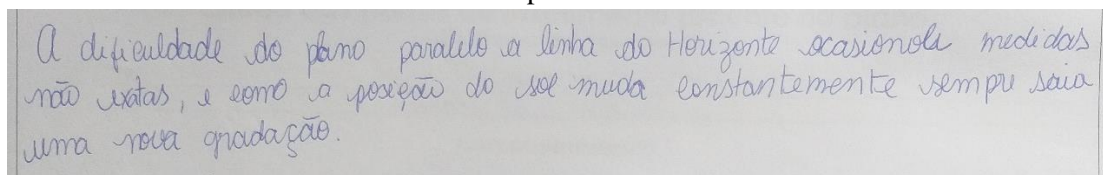 A dificuldade do plano paralelo a linha do Horizonte ocasionou medidas
não exatas, e como a posição do sol muda constantemente sempre saia
uma nova gradação.